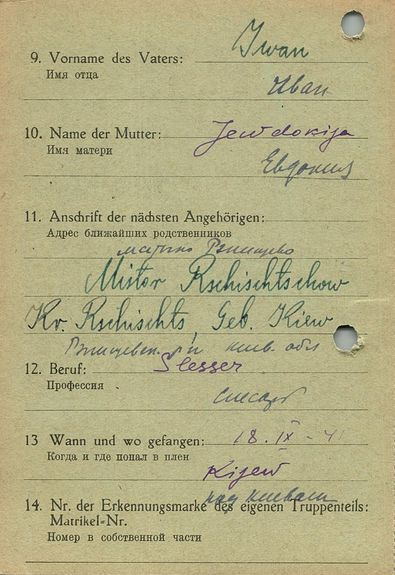 Iwan
9. Vorname des Vaters:
Имя отца
Иван
10. Name der Mutter: Jewdokija
Имя матери
Евдокия
11. Anschrift der nächsten Angehörigen:
Адрес ближайших родственников
Ржищево
Mistor Rschischtschow
Kr. Rschischts, Geb. Kiew
р-н киев. обл
12. Beruf: Slesser
Профессия
слесарь
13 Wann und wo gefangen: 18. IX - 41
Когда и где попал в плен
Kijew
под киевом
14. Nr. der Erkennungsmarke des eigenen Truppenteils:
Matrikel-Nr.
Номер в собственной части